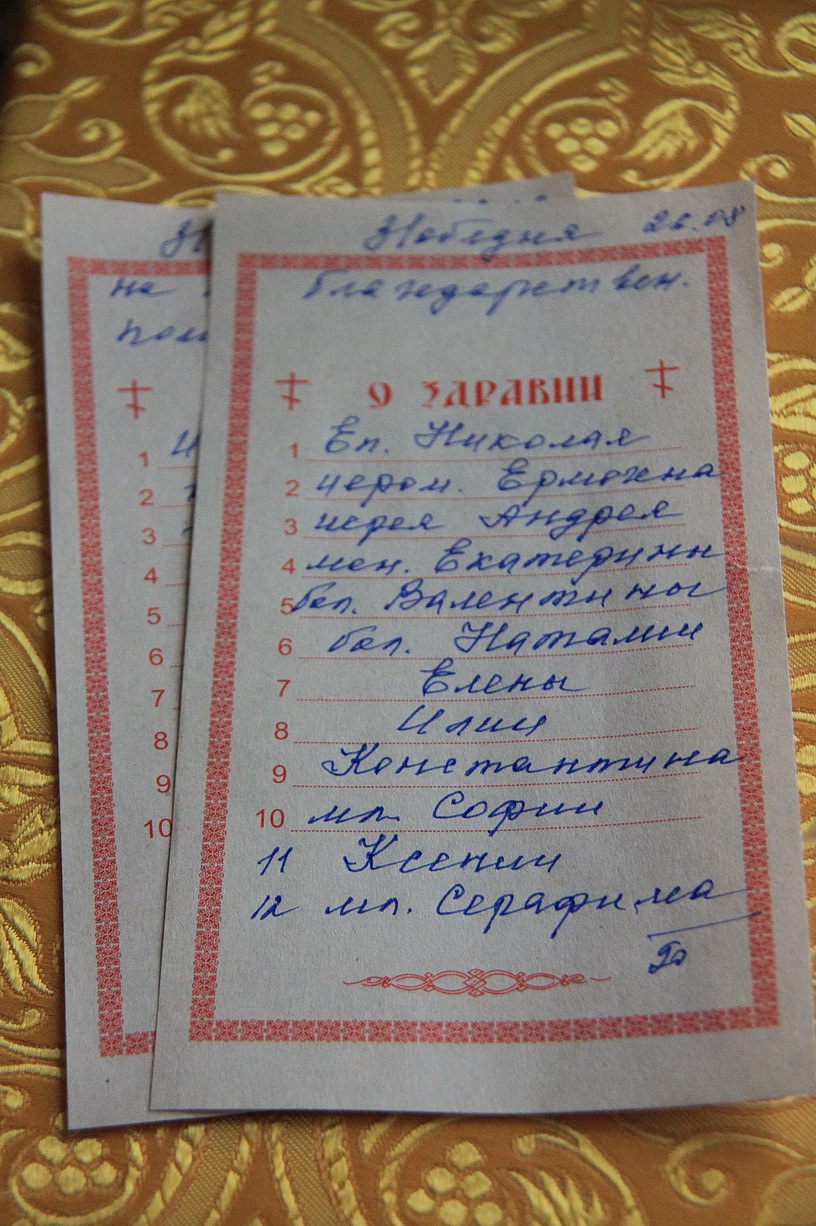 на
26.08
благодарствен.
О ЗДРАВИИ
1 Еп. Николая
2 иером. Ермогена
3 иерея Андрея
4 мон. Екатерины
5 бол. Валентины
6 бол. Наталии
7 Елены
8 Илии
9 Константина
10 мл. Софии
11 Ксении
12 мл. Серафима
1
2
3
4
5
6
7
8
9
10